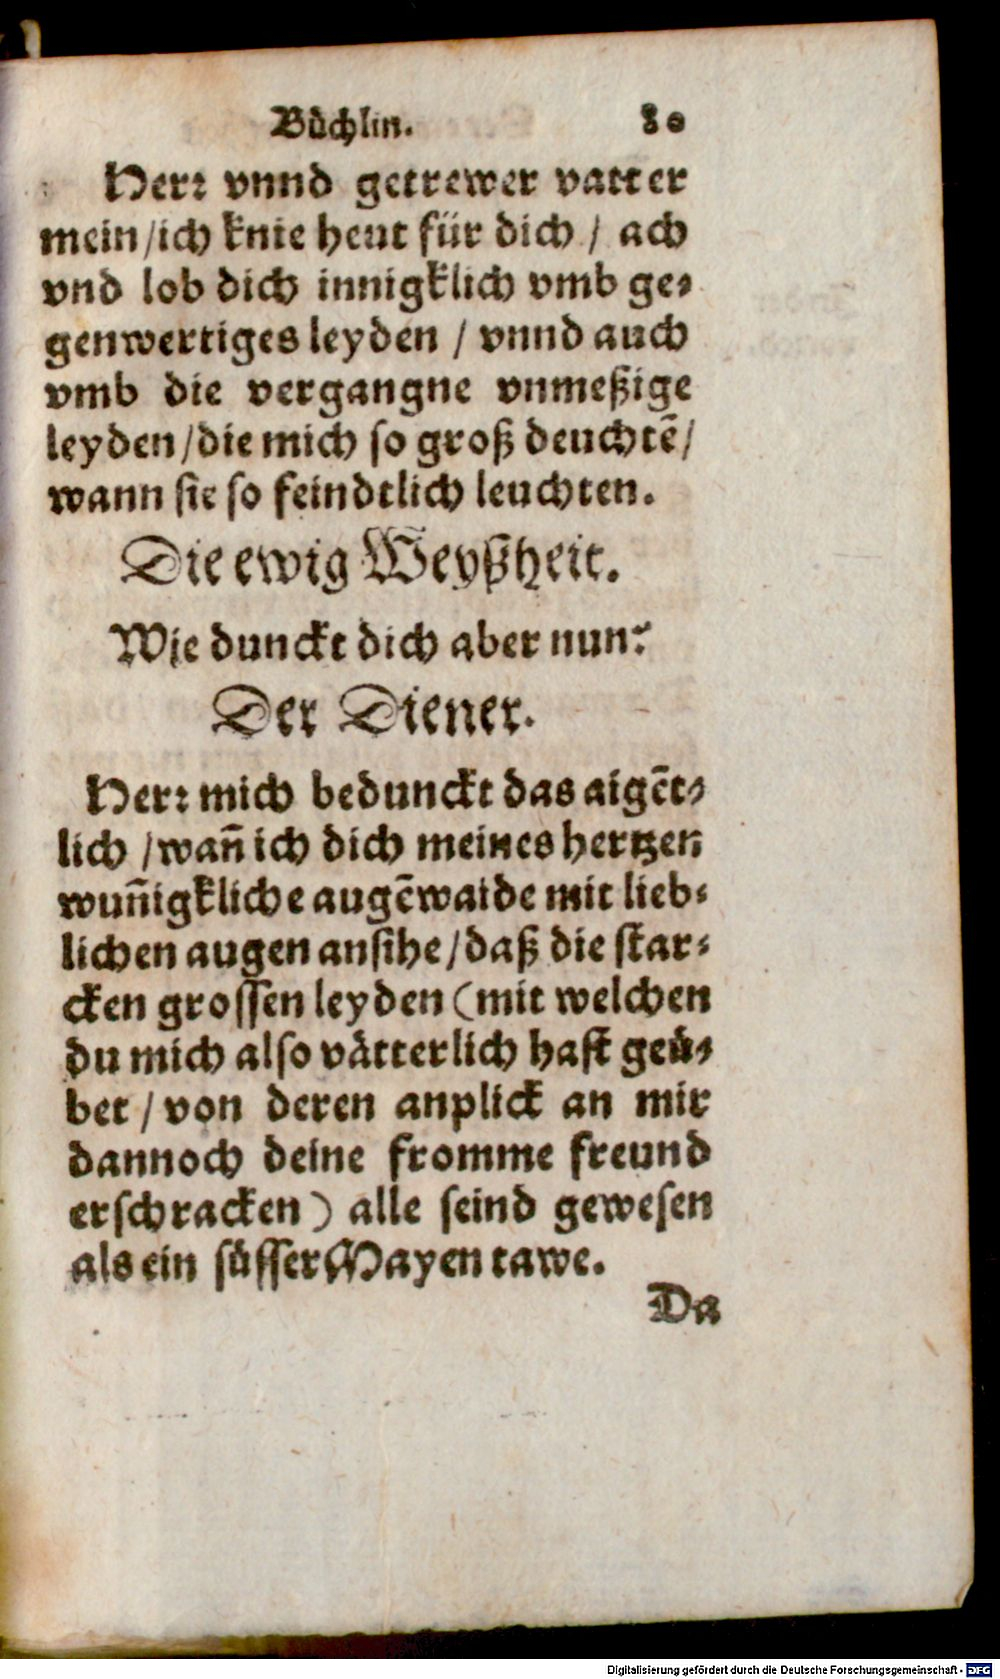 Bůchlin. 80
Herꝛ vnnd getrewer vatter
mein/ich knie heut für dich / ach
vnd lob dich innigklich vmb ge⸗
genwertiges leyden / vnnd auch
vmb die vergangne vnmeßige
leyden/die mich so groß deuchtẽ/
wann sie so feindtlich leuchten.
Die ewig Weyßheit.
Wie dunckt dich aber nun?
Der Diener.
Herꝛ mich bedunckt das aigẽt⸗
lich /wañ ich dich meines hertzen
wuñigkliche augẽwaide mit lieb⸗
lichen augen ansihe/daß die star⸗
cken grossen leyden (mit welchen
du mich also våtterlich hast geů⸗
bet / von deren anplick an mir
dannoch deine fromme freund
erschracken) alle seind gewesen
als ein süsser Mayen tawe.
Da
Digitalisierung gefördert durch die Deutsche Forschungsgemeinschaft - DFG